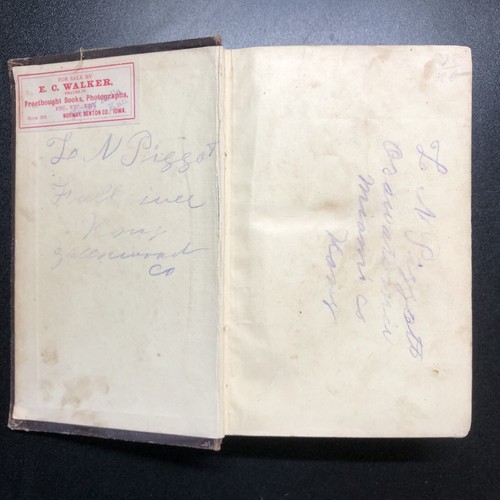 FOR SALE BY
E. C. WALKER,
Freethought Books, Photographs,
NORWAY, BENTON CO., IOWA.
L N Piggot
Fall river
Kans
Greenwood
Co
L N Piggott
Osawatomie
Miami Co
Kans